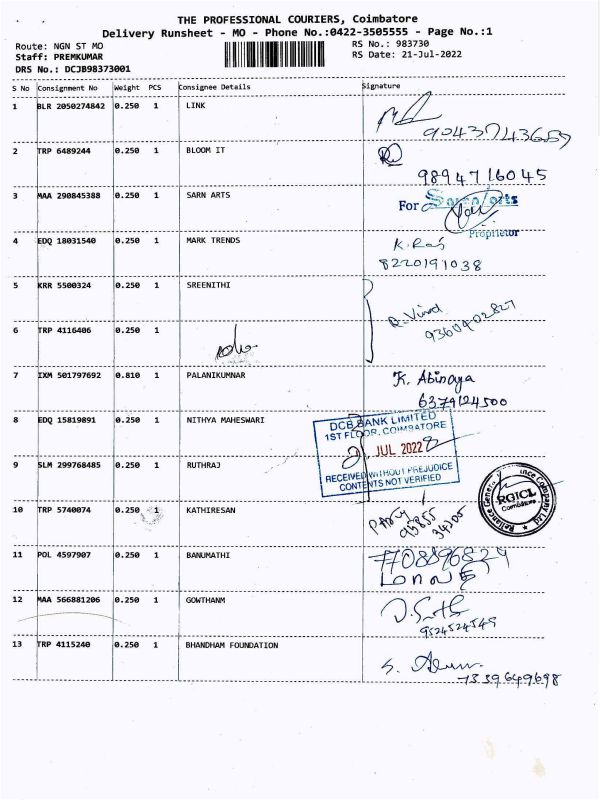 THE PROFESSIONAL COURIERS, Coimbatore
Delivery Runsheet - MO - Phone No.:0422-3505555 - Page No.:1
Route: NGN ST MO RS No.: 983730
Staff: PREMKUMAR RS Date: 21-Jul-2022
DRS No.: DCJB98373001
S No Consignment No Weight PCS Consignee Details Signature
1 BLR 2050274842 0.250 1 LINK
2 TRP 6489244 0.250 1 BLOOM IT
9894716045
3 MAA 290845388 0.250 1 SARN ARTS
For
Proprietor
4 EDQ 18031540 0.250 1 MARK TRENDS K. Raj
8220191038
5 KRR 5500324 0.250 1 SREENITHI
6 TRP 4116406 0.250 1
7 IXM 501797692 0.810 1 PALANIKUMNAR K. Abinaya
6379124500
8 EDQ 15819891 0.250 1 NITHYA MAHESWARI
DCB BANK LIMITED
1ST FLOOR, COIMBATORE
JUL 2022
RECEIVED WITHOUT PREJUDICE
CONTENTS NOT VERIFIED
9 SLM 299768485 0.250 1 RUTHRAJ
Reliance General Insurance Company Ltd
RGICL
Coimbatore
10 TRP 5740074 0.250 1 KATHIRESAN
11 POL 4597907 0.250 1 BANUMATHI
12 MAA 566881206 0.250 1 GOWTHANM
9524524549
13 TRP 4115240 0.250 1 BHANDHAM FOUNDATION